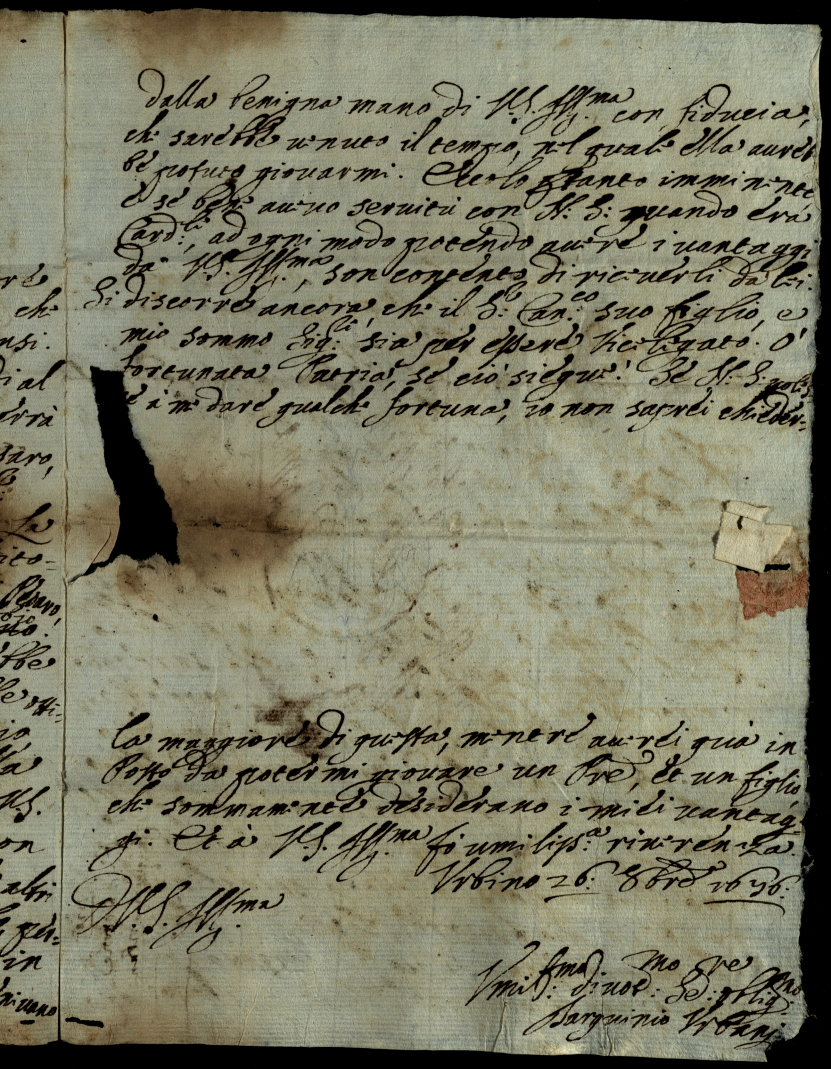 dalla benigna mano di V.S. Ill.ma con fiducia,
che sarebbe venuto il tempo, nel quale ella avreb
be potuto giovarmi. Eccolo stanto imminente
e se bene avevo servitù con N. S. quando era
Card.le, ad ogni modo potendo avere i vantaggi
da V.S. Ill.ma, son contento di riceverli da lei.
Si discorre ancora, che il S.r Can.co suo figlio, e
mio sommo Sig.re sia per essere Vicelegato. O'
fortunata Patria, se ciò siegue! Se N. S. vole
è à me dare qualche fortuna, io non saprei chieder-
la maggiore di questa, mentre averei quà in
Posto da potermi giovare un Pre, et un figlio,
che sommamente desiderano i miei vantag-
gi. Et à V.S. Ill.ma fò umiliss.a riverenza.
Urbino 26: 8bre 1696.
D V.S. Ill.ma
Umil.mo divot.mo Se.re oblig.mo
Tarquinio Urbani
re
che
nsi.
di al
errà
saro,
La
ito-
Pesaro,
bbe
io
la
V.S.
on
altri
per-
in